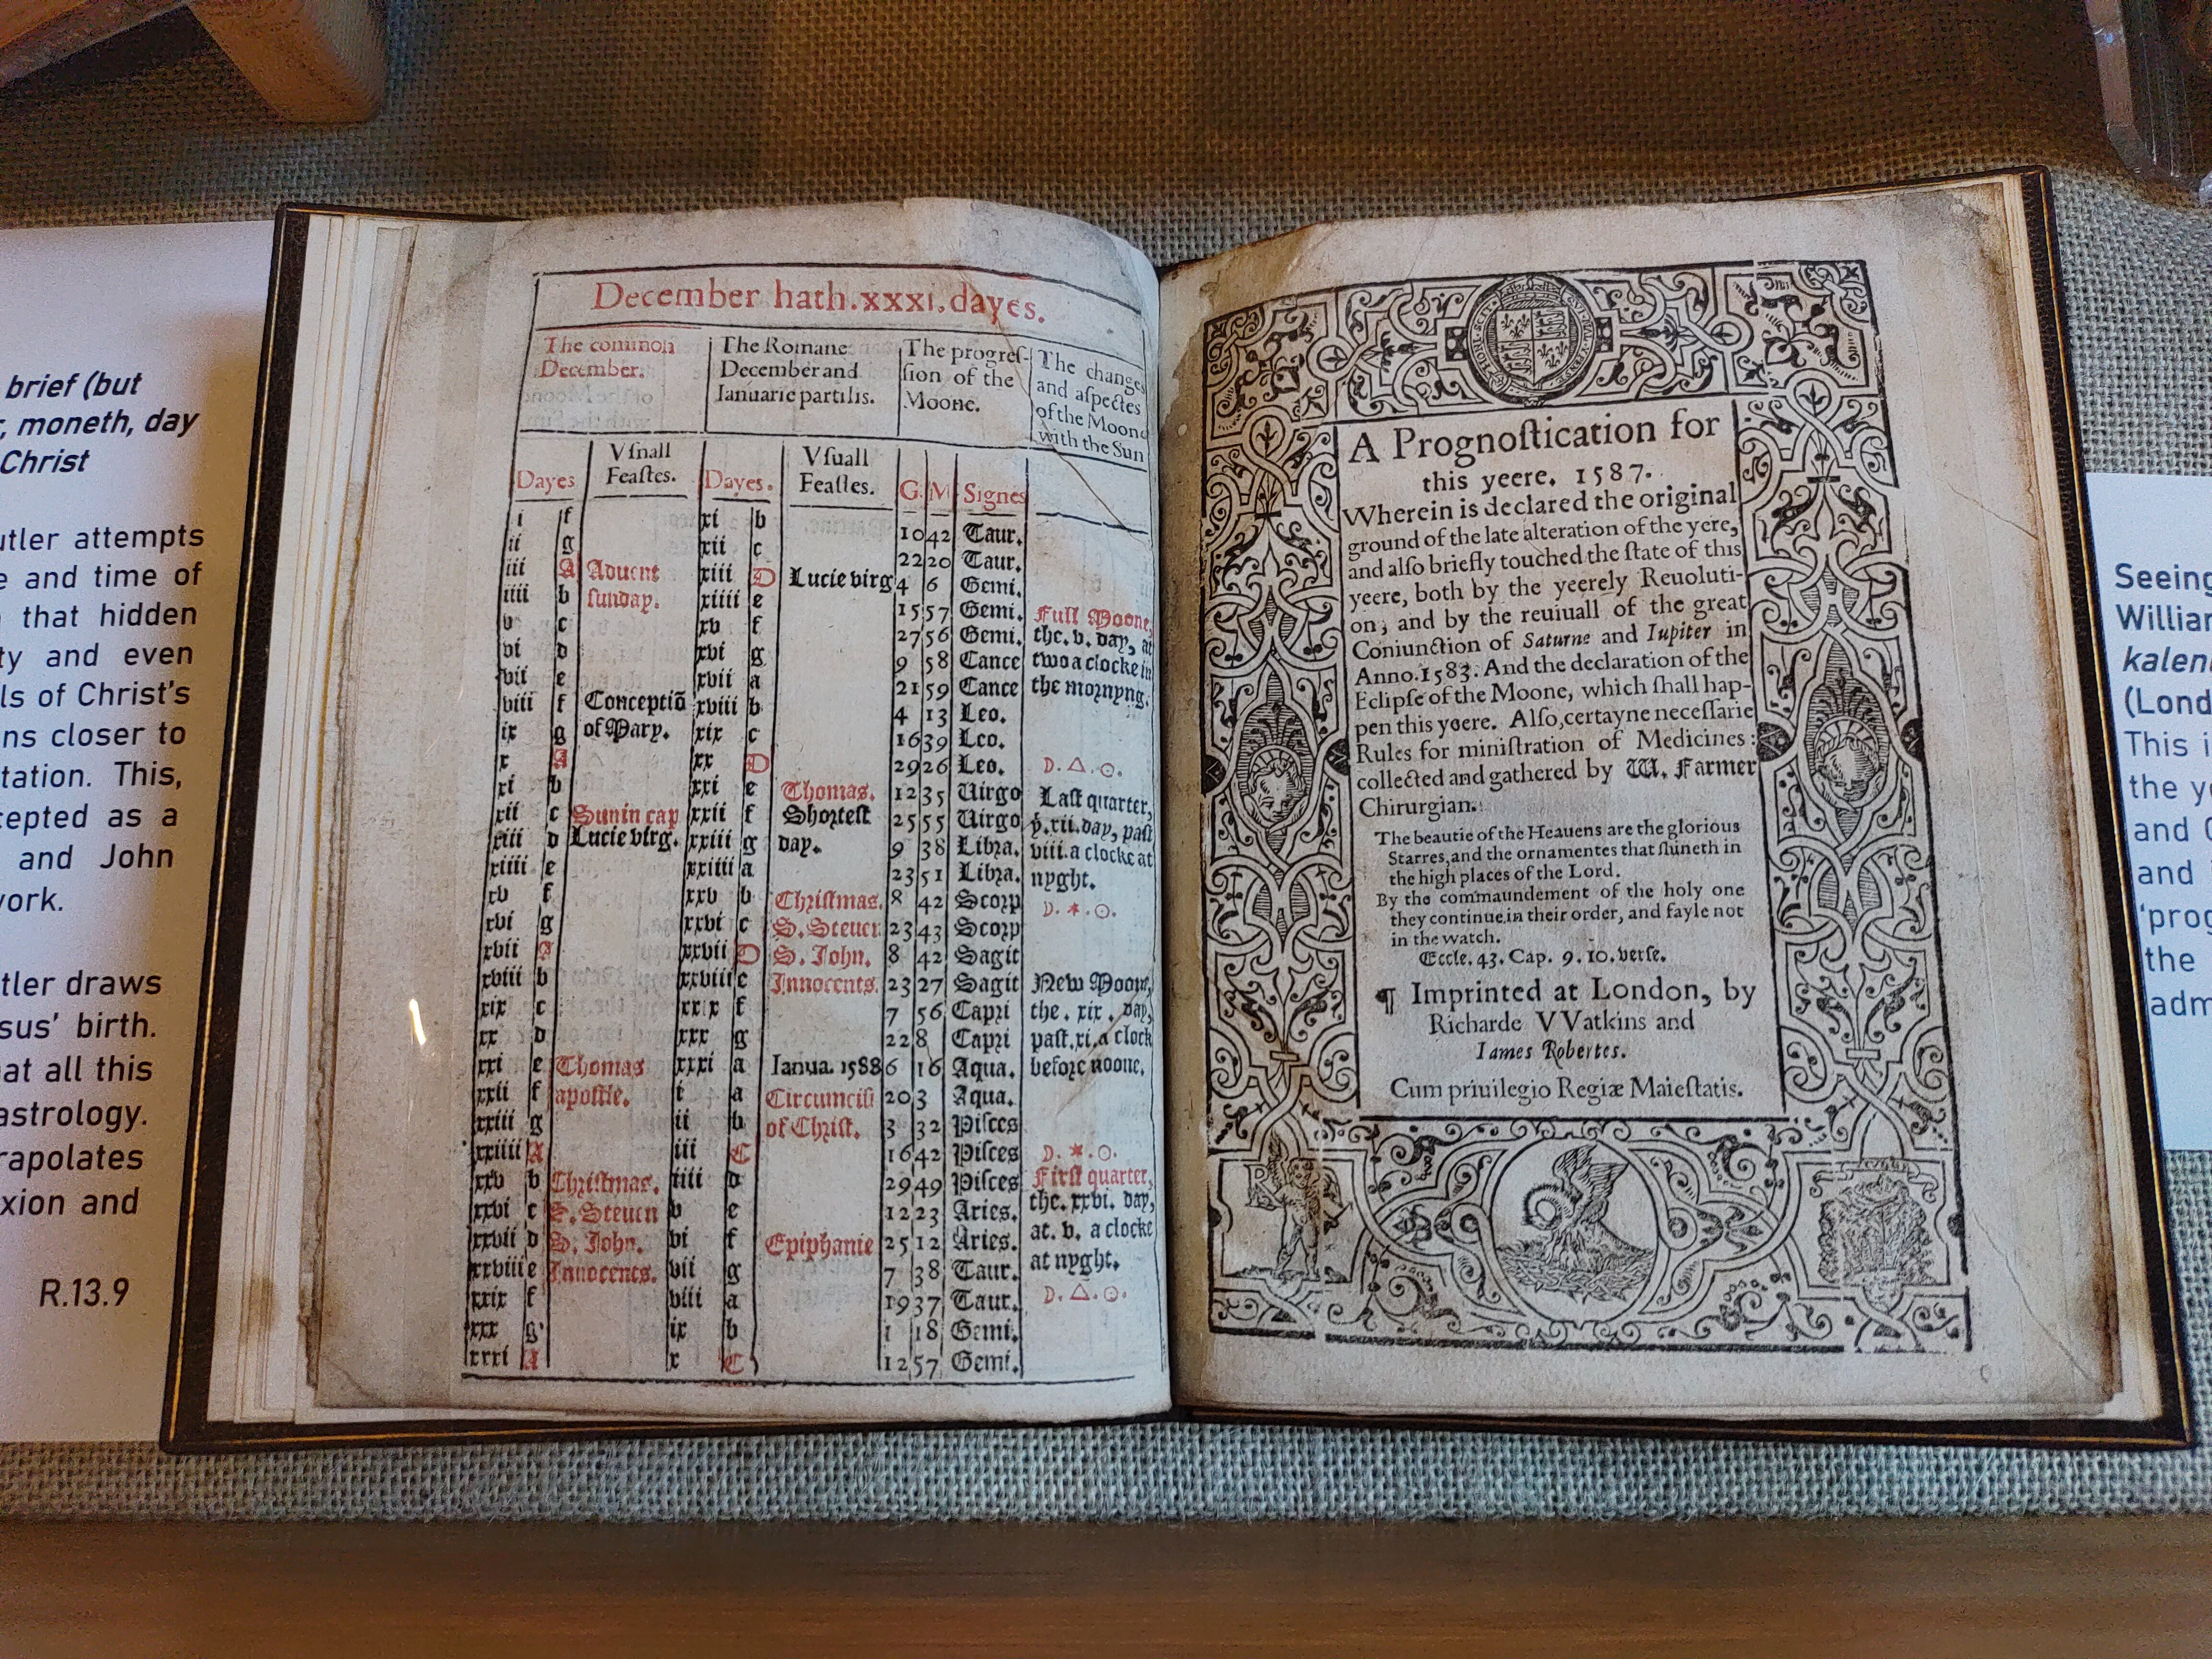 brief (but
, moneth, day
Christ
utler attempts
e and time of
that hidden
ty and even
ls of Christ's
ns closer to
tation. This,
cepted as a
and John
work.
tler draws
sus' birth.
at all this
astrology.
rapolates
xion and
R.13.9
December hath.xxxi.dayes.
The common December. The Romane December and Ianuarie partilis. The progreſ-ſion of the Moone. The changes and aſpectes of the Moone with the Sun
Dayes Vſuall Feaſtes. Dayes. Vſuall Feaſtes. G. M Signes
i f xi b 10 42 Taur.
ii g xii c 22 20 Taur.
iii A Aduent xiii D Lucie virg 4 6 Gemi.
iiii b ſunday. xiiii e 15 57 Gemi. Full Moone,
v c xv f 27 56 Gemi. the. v. day, at
vi d xvi g 9 58 Cance two a clocke in
vii e xvii a 21 59 Cance the mornyng.
viii f Conceptiõ xviii b 4 13 Leo.
ix g of Mary. xix c 16 39 Leo.
x A xx D 29 26 Leo. ☽. △. ☉.
xi b xxi e Thomas. 12 35 Uirgo Laſt quarter,
xii c Sun in cap xxii f Shorteſt 25 55 Uirgo ẏ. xii. day, paſt
xiii d Lucie virg. xxiii g day. 9 38 Libra. viii. a clocke at
xiiii e xxiiii a 23 51 Libra. nyght.
xv f xxv b Chriſtmas. 8 42 Scorp ☽. ✶. ☉.
xvi g xxvi c S. Steuen 23 43 Scorp
xvii A xxvii D S. John. 8 42 Sagit
xviii b xxviii e Innocents. 23 27 Sagit New Moone,
xix c xxix f 7 56 Capri the. xix. day,
xx d xxx g 22 8 Capri paſt. xi. a clock
xxi e Thomas xxxi a Ianua. 1588 6 16 Aqua. before noone.
xxii f apoſtle. i a Circumciſi 20 3 Aqua.
xxiii g ii b of Chriſt. 3 32 Piſces
xxiiii A iii C 16 42 Piſces ☽. ✶. ☉.
xxv b Chriſtmas. iiii d 29 49 Piſces Firſt quarter,
xxvi c S. Steuen v e 12 23 Aries. the. xxvi. day,
xxvii d S. John. vi f Epiphanie 25 12 Aries. at. v. a clocke
xxviii e Innocents. vii g 7 38 Taur. at nyght.
xxix f viii a 19 37 Taur. ☽. △. ☉.
xxx g ix b 1 18 Gemi.
xxxi A x C 12 57 Gemi.
A Prognoſtication for
this yeere. 1587.
Wherein is declared the original
ground of the late alteration of the yere,
and alſo briefly touched the ſtate of this
yeere, both by the yeerely Reuoluti-
on, and by the reuiuall of the great
Coniunction of Saturne and Iupiter in
Anno. 1583. And the declaration of the
Eclipſe of the Moone, which ſhall hap-
pen this yeere. Alſo, certayne neceſſarie
Rules for miniſtration of Medicines:
collected and gathered by W. Farmer
Chirurgian.
The beautie of the Heauens are the glorious
Starres, and the ornamentes that ſhineth in
the high places of the Lord.
By the commaundement of the holy one
they continue in their order, and fayle not
in the watch.
Eccle. 43. Cap. 9. 10. verſe.
¶ Imprinted at London, by
Richarde VVatkins and
Iames Robertes.
Cum priuilegio Regiæ Maieſtatis.
Seeing
William
kalen
(Lond
This i
the y
and
and
'prog
the
adm